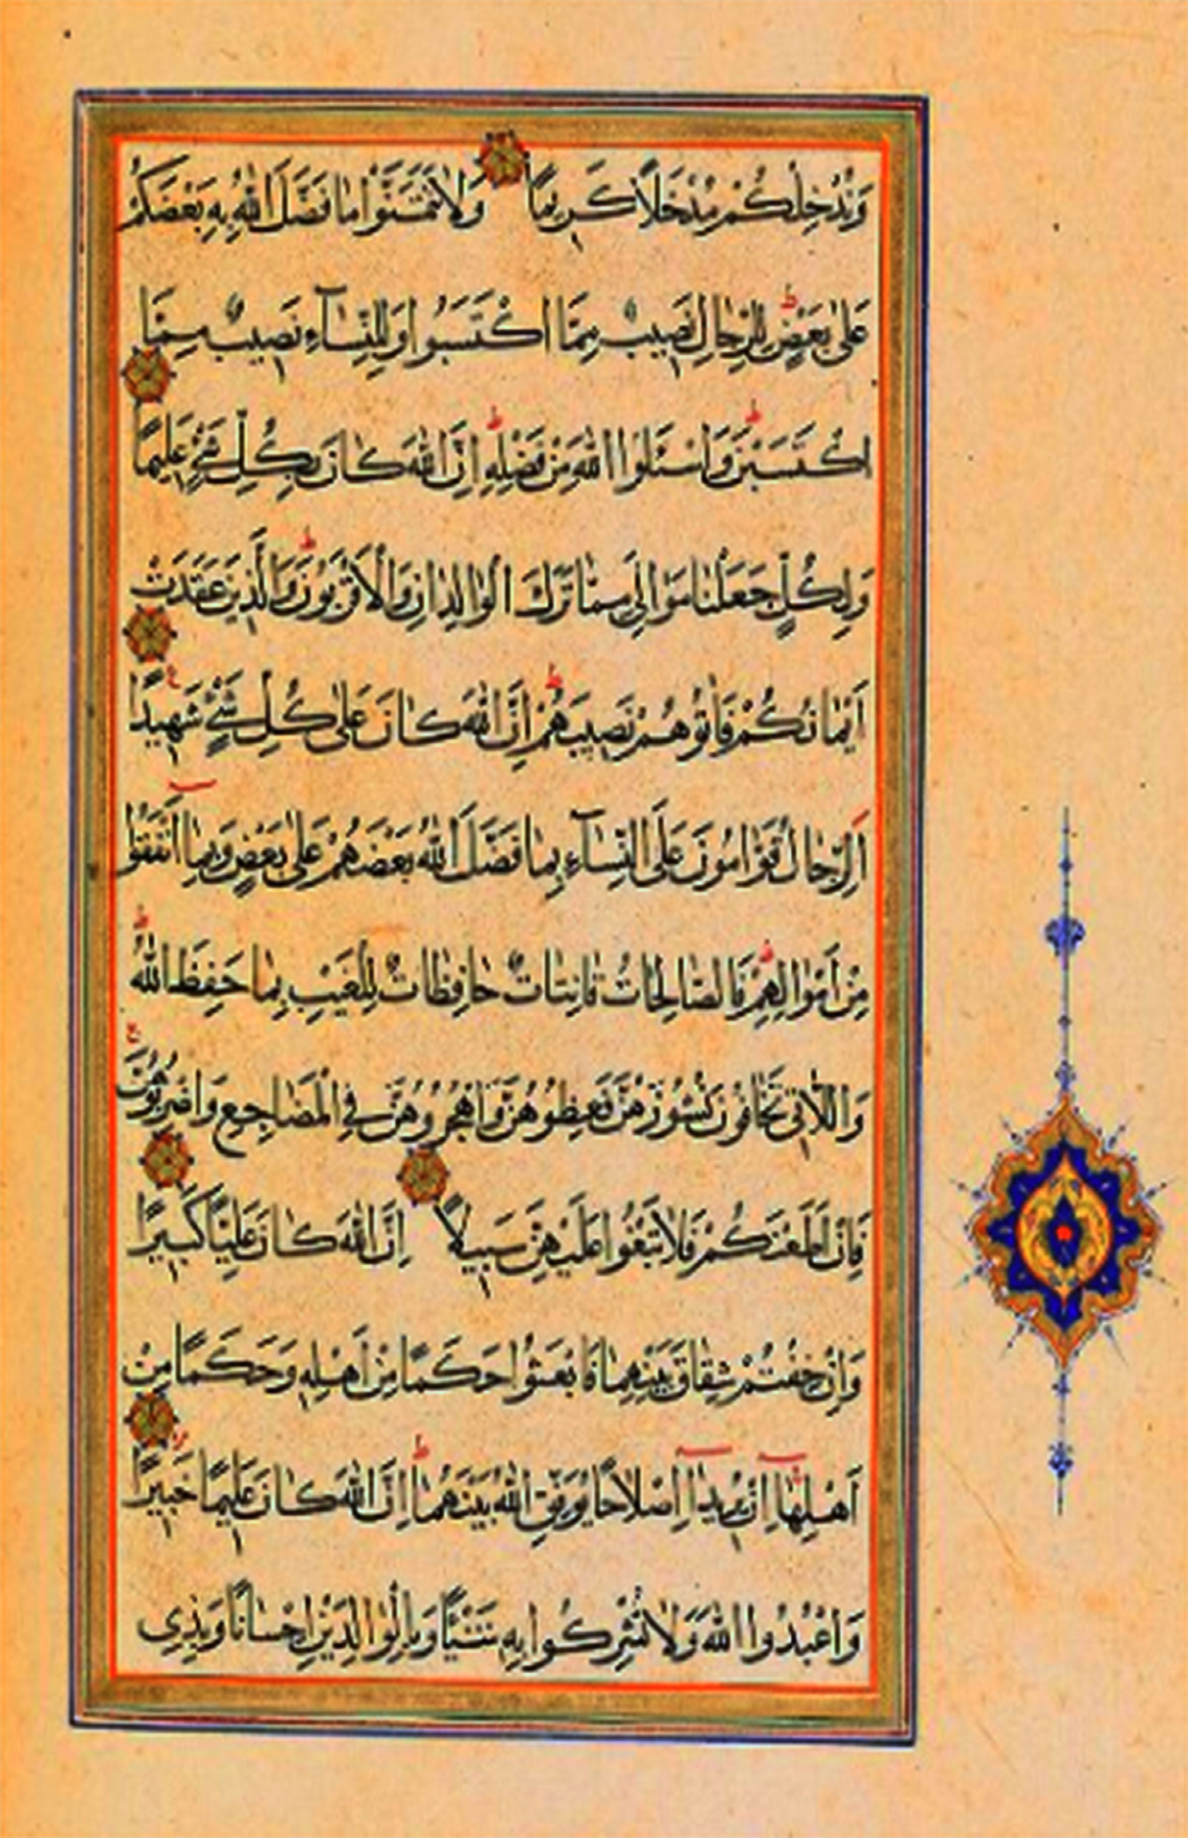 وَنُدْخِلْكُمْ مُدْخَلًا كَرِيمًا وَلَا تَتَمَنَّوْا مَا فَضَّلَ اللّٰهُ بِهِ بَعْضَكُمْ
عَلٰى بَعْضٍ لِلرِّجَالِ نَصِيبٌ مِمَّا اكْتَسَبُوا وَلِلنِّسَآءِ نَصِيبٌ مِمَّا
اكْتَسَبْنَ وَاسْئَلُوا اللّٰهَ مِنْ فَضْلِهِ اِنَّ اللّٰهَ كَانَ بِكُلِّ شَيْءٍ عَلِيمًا
وَلِكُلٍّ جَعَلْنَا مَوَالِيَ مِمَّا تَرَكَ الْوَالِدَانِ وَالْاَقْرَبُونَ وَالَّذِينَ عَقَدَتْ
اَيْمَانُكُمْ فَاٰتُوهُمْ نَصِيبَهُمْ اِنَّ اللّٰهَ كَانَ عَلٰى كُلِّ شَيْءٍ شَهِيدًا
اَلرِّجَالُ قَوَّامُونَ عَلَى النِّسَآءِ بِمَا فَضَّلَ اللّٰهُ بَعْضَهُمْ عَلٰى بَعْضٍ وَبِمَآ اَنْفَقُوا
مِنْ اَمْوَالِهِمْ فَالصَّالِحَاتُ قَانِتَاتٌ حَافِظَاتٌ لِلْغَيْبِ بِمَا حَفِظَ اللّٰهُ
وَاللَّاتِي تَخَافُونَ نُشُوزَهُنَّ فَعِظُوهُنَّ وَاهْجُرُوهُنَّ فِي الْمَضَاجِعِ وَاضْرِبُوهُنَّ
فَاِنْ اَطَعْنَكُمْ فَلَا تَبْغُوا عَلَيْهِنَّ سَبِيلًا اِنَّ اللّٰهَ كَانَ عَلِيًّا كَبِيرًا
وَاِنْ خِفْتُمْ شِقَاقَ بَيْنِهِمَا فَابْعَثُوا حَكَمًا مِنْ اَهْلِهِ وَحَكَمًا مِنْ
اَهْلِهَآ اِنْ يُرِيدَآ اِصْلَاحًا يُوَفِّقِ اللّٰهُ بَيْنَهُمَا اِنَّ اللّٰهَ كَانَ عَلِيمًا خَبِيرًا
وَاعْبُدُوا اللّٰهَ وَلَا تُشْرِكُوا بِهِ شَيْئًا وَبِالْوَالِدَيْنِ اِحْسَانًا وَبِذِي